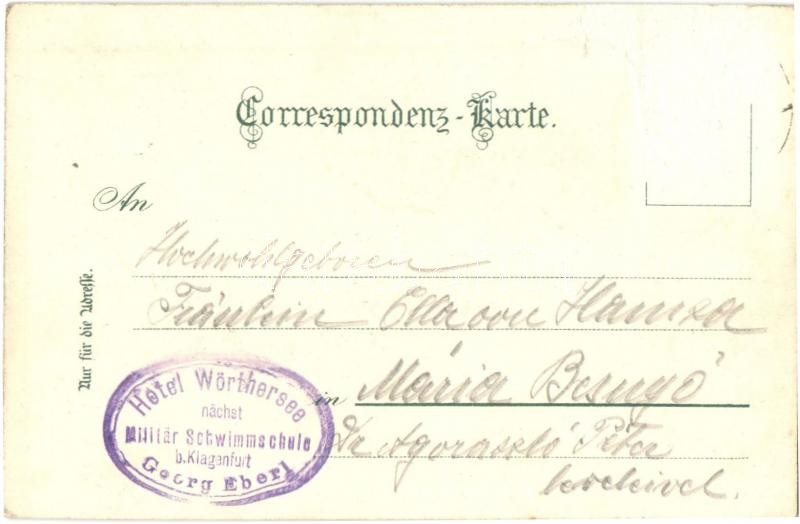 Correspondenz-Karte.
An
Hochwohlgeboren
Fräulein Ella von Hamza
in Mária Besnyö
Dr Agoraszló Péter
Nur für die Adresse.
Hotel Wörthersee
nächst
Militär Schwimmschule
b. Klagenfurt
Georg Eberl